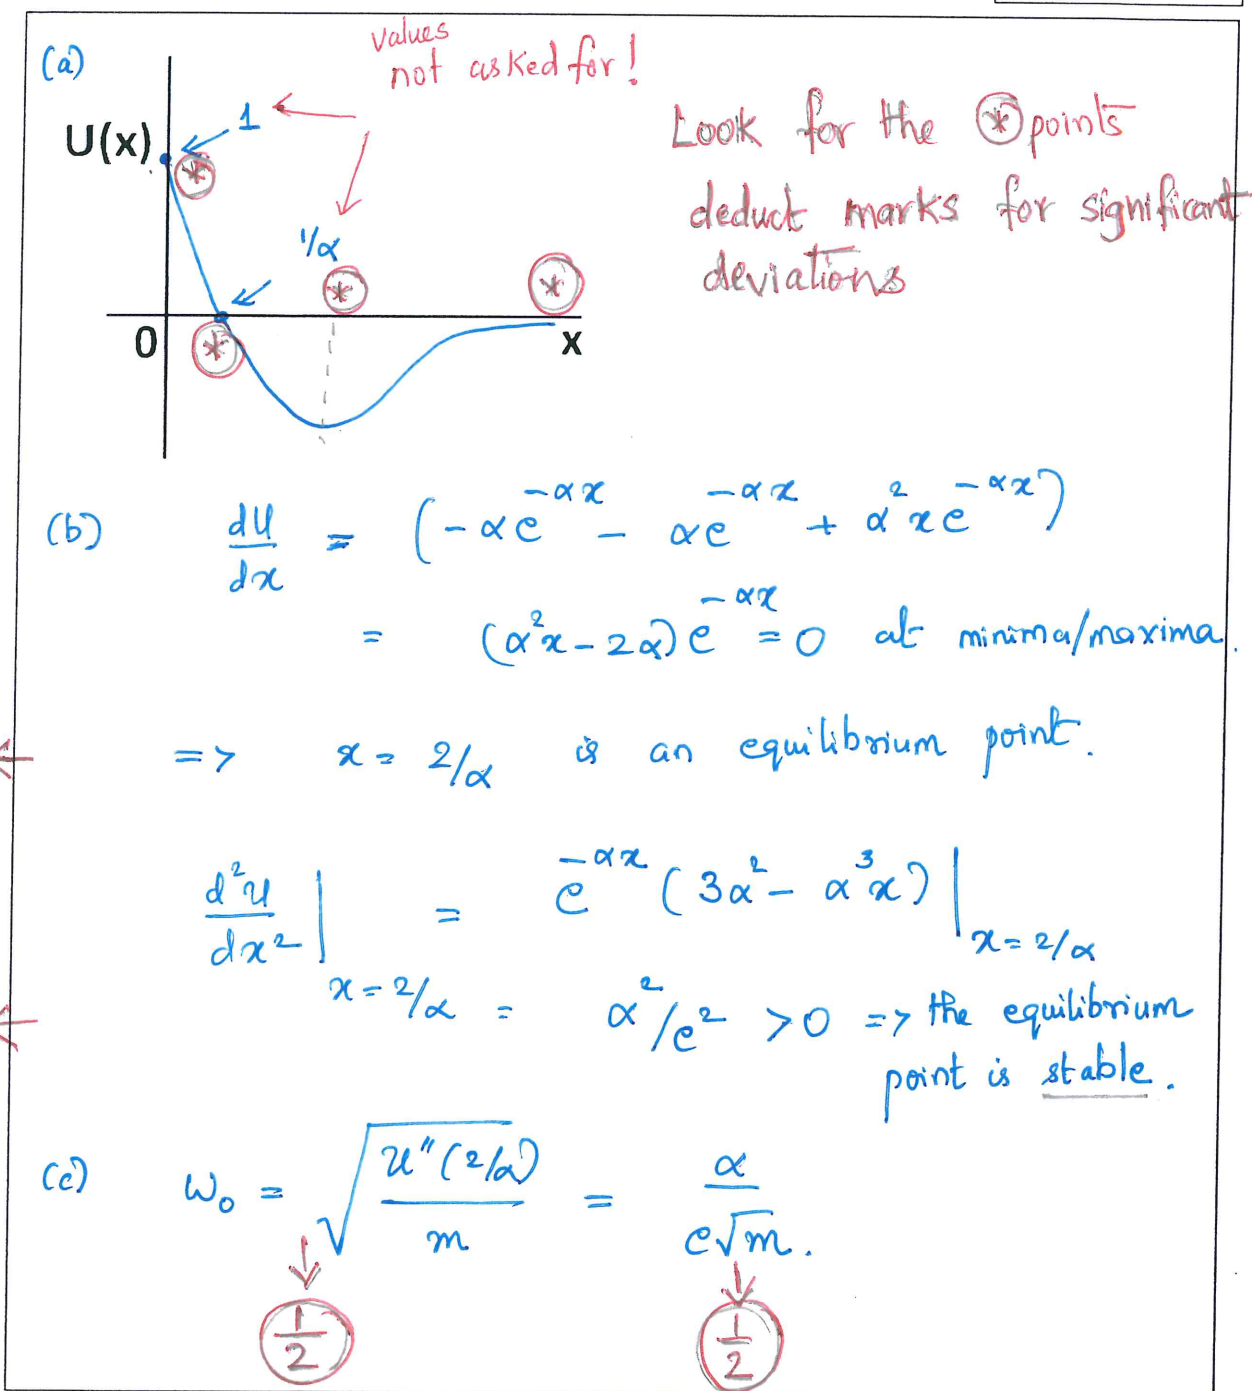 (a)
values
not asked for!
1
U(x)
Look for the ⊛ points
deduct marks for significant
deviations
1/α
0
x
(b) dU/dx = (-αe^{-αx} - αe^{-αx} + α²xe^{-αx})
= (α²x-2α)e^{-αx} = 0 at minima/maxima.
=> x = 2/α is an equilibrium point.
d²U/dx² |_{x=2/α} = e^{-αx} (3α² - α³x) |_{x=2/α}
= α²/e² >0 => the equilibrium
point is stable.
(c) ω₀ = √(U"(2/α)/m) = α/(e√m).
1/2
1/2